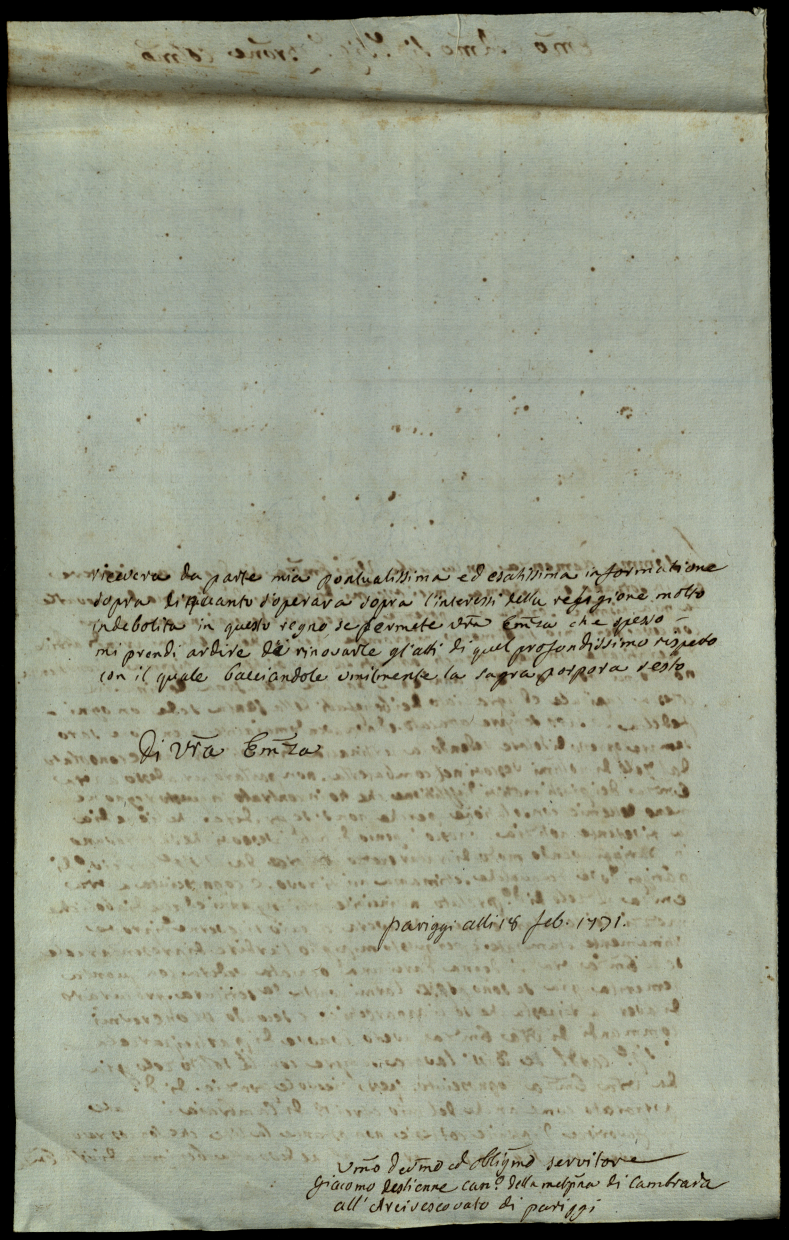 ricevera da parte mia pontualissima ed esatissima informatione
sopra di quanto s'operara sopra l'interessi della religione molto
indebolita in questo regno se permete vrã Emza che spesso –
mi prendi ardire di rinovarle gl'atti di quel profondissimo rispeto
con il quale bacciandole umilmente la sapra porpora resto
Di Vrã Emza
pariggi alli 18 feb. 1731.
Umõ devmõ ed obligmõ servitore
Giacomo canº della metpna di Cambraia
all'Arcivescovato di pariggi